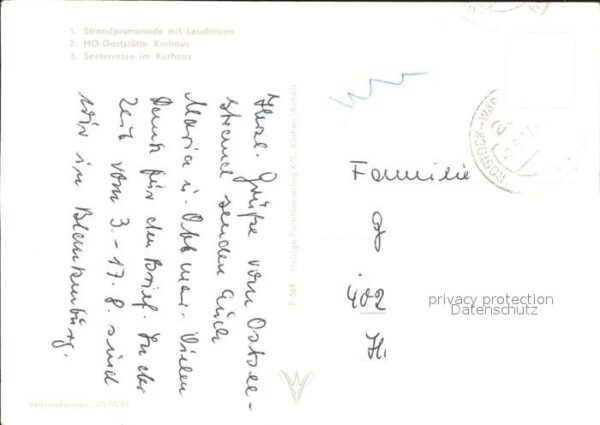 1. Strandpromenade mit Leuchtturm
2. HO-Gaststätte Kurhaus
3. Seeterrasse im Kurhaus
Herzl. Grüße vom Ostsee-
strand senden Euch
Maria u. Ottmar. Vielen
Dank für den Brief. In der
Zeit vom 3.-17.8. sind
wir in Blankenburg.
Heldge-Farbfotoverlag KG, Köthen/Anhalt
ROSTOCK
Familie
J
402
H.
privacy protection
Datenschutz